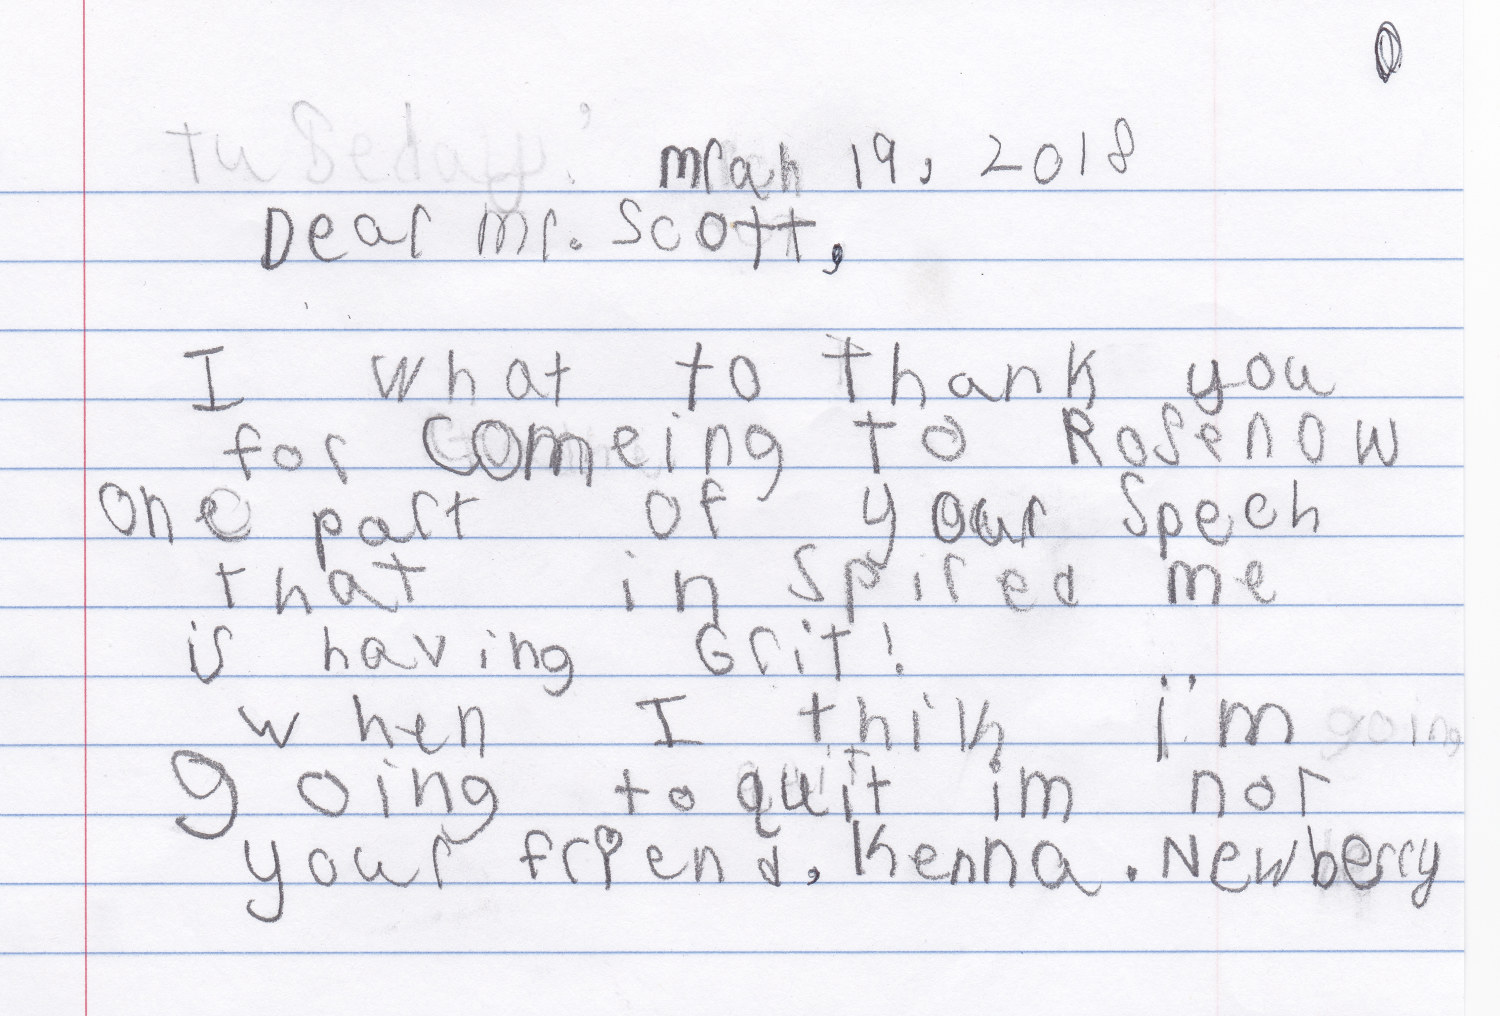 mrah 19, 2018
Dear mr. Scott,
I what to thank you
for comeing to Rosenow
one part of your Spech
that in Spired me
is having Grit!
when I thik i'm
going to quit im not
your friend, Kenna. Newberry